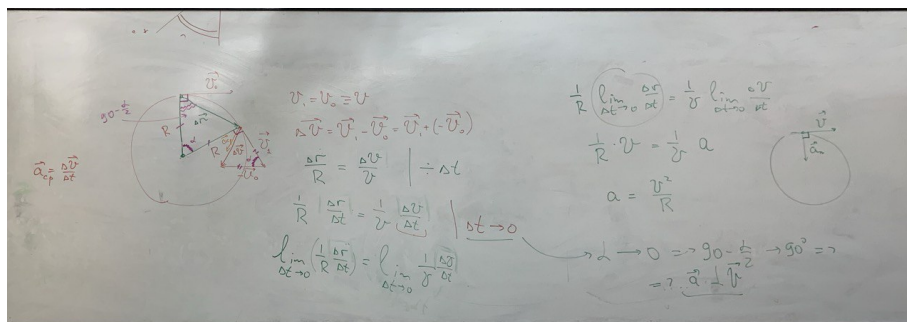 v⃗₀
90-α/2
Δr⃗
R
α
R
Δv⃗
v⃗₁
-v⃗₀
a⃗ср = Δv⃗/Δt
v₁ = v₀ ≡ v
Δv⃗ = v⃗₁ - v⃗₀ = v⃗₁ + (-v⃗₀)
Δr/R = Δv/v | ÷ Δt
1/R |Δr/Δt| = 1/v |Δv/Δt| | Δt → 0
lim Δt→0 (1/R |Δr/Δt|) = lim Δt→0 1/v |Δv/Δt|
1/R lim Δt→0 Δr/Δt = 1/v lim Δt→0 Δv/Δt
1/R · v = 1/v a
a = v²/R
v⃗
a⃗
α → 0 => 90 - α/2 → 90° =>
=> a⃗ ⊥ v⃗